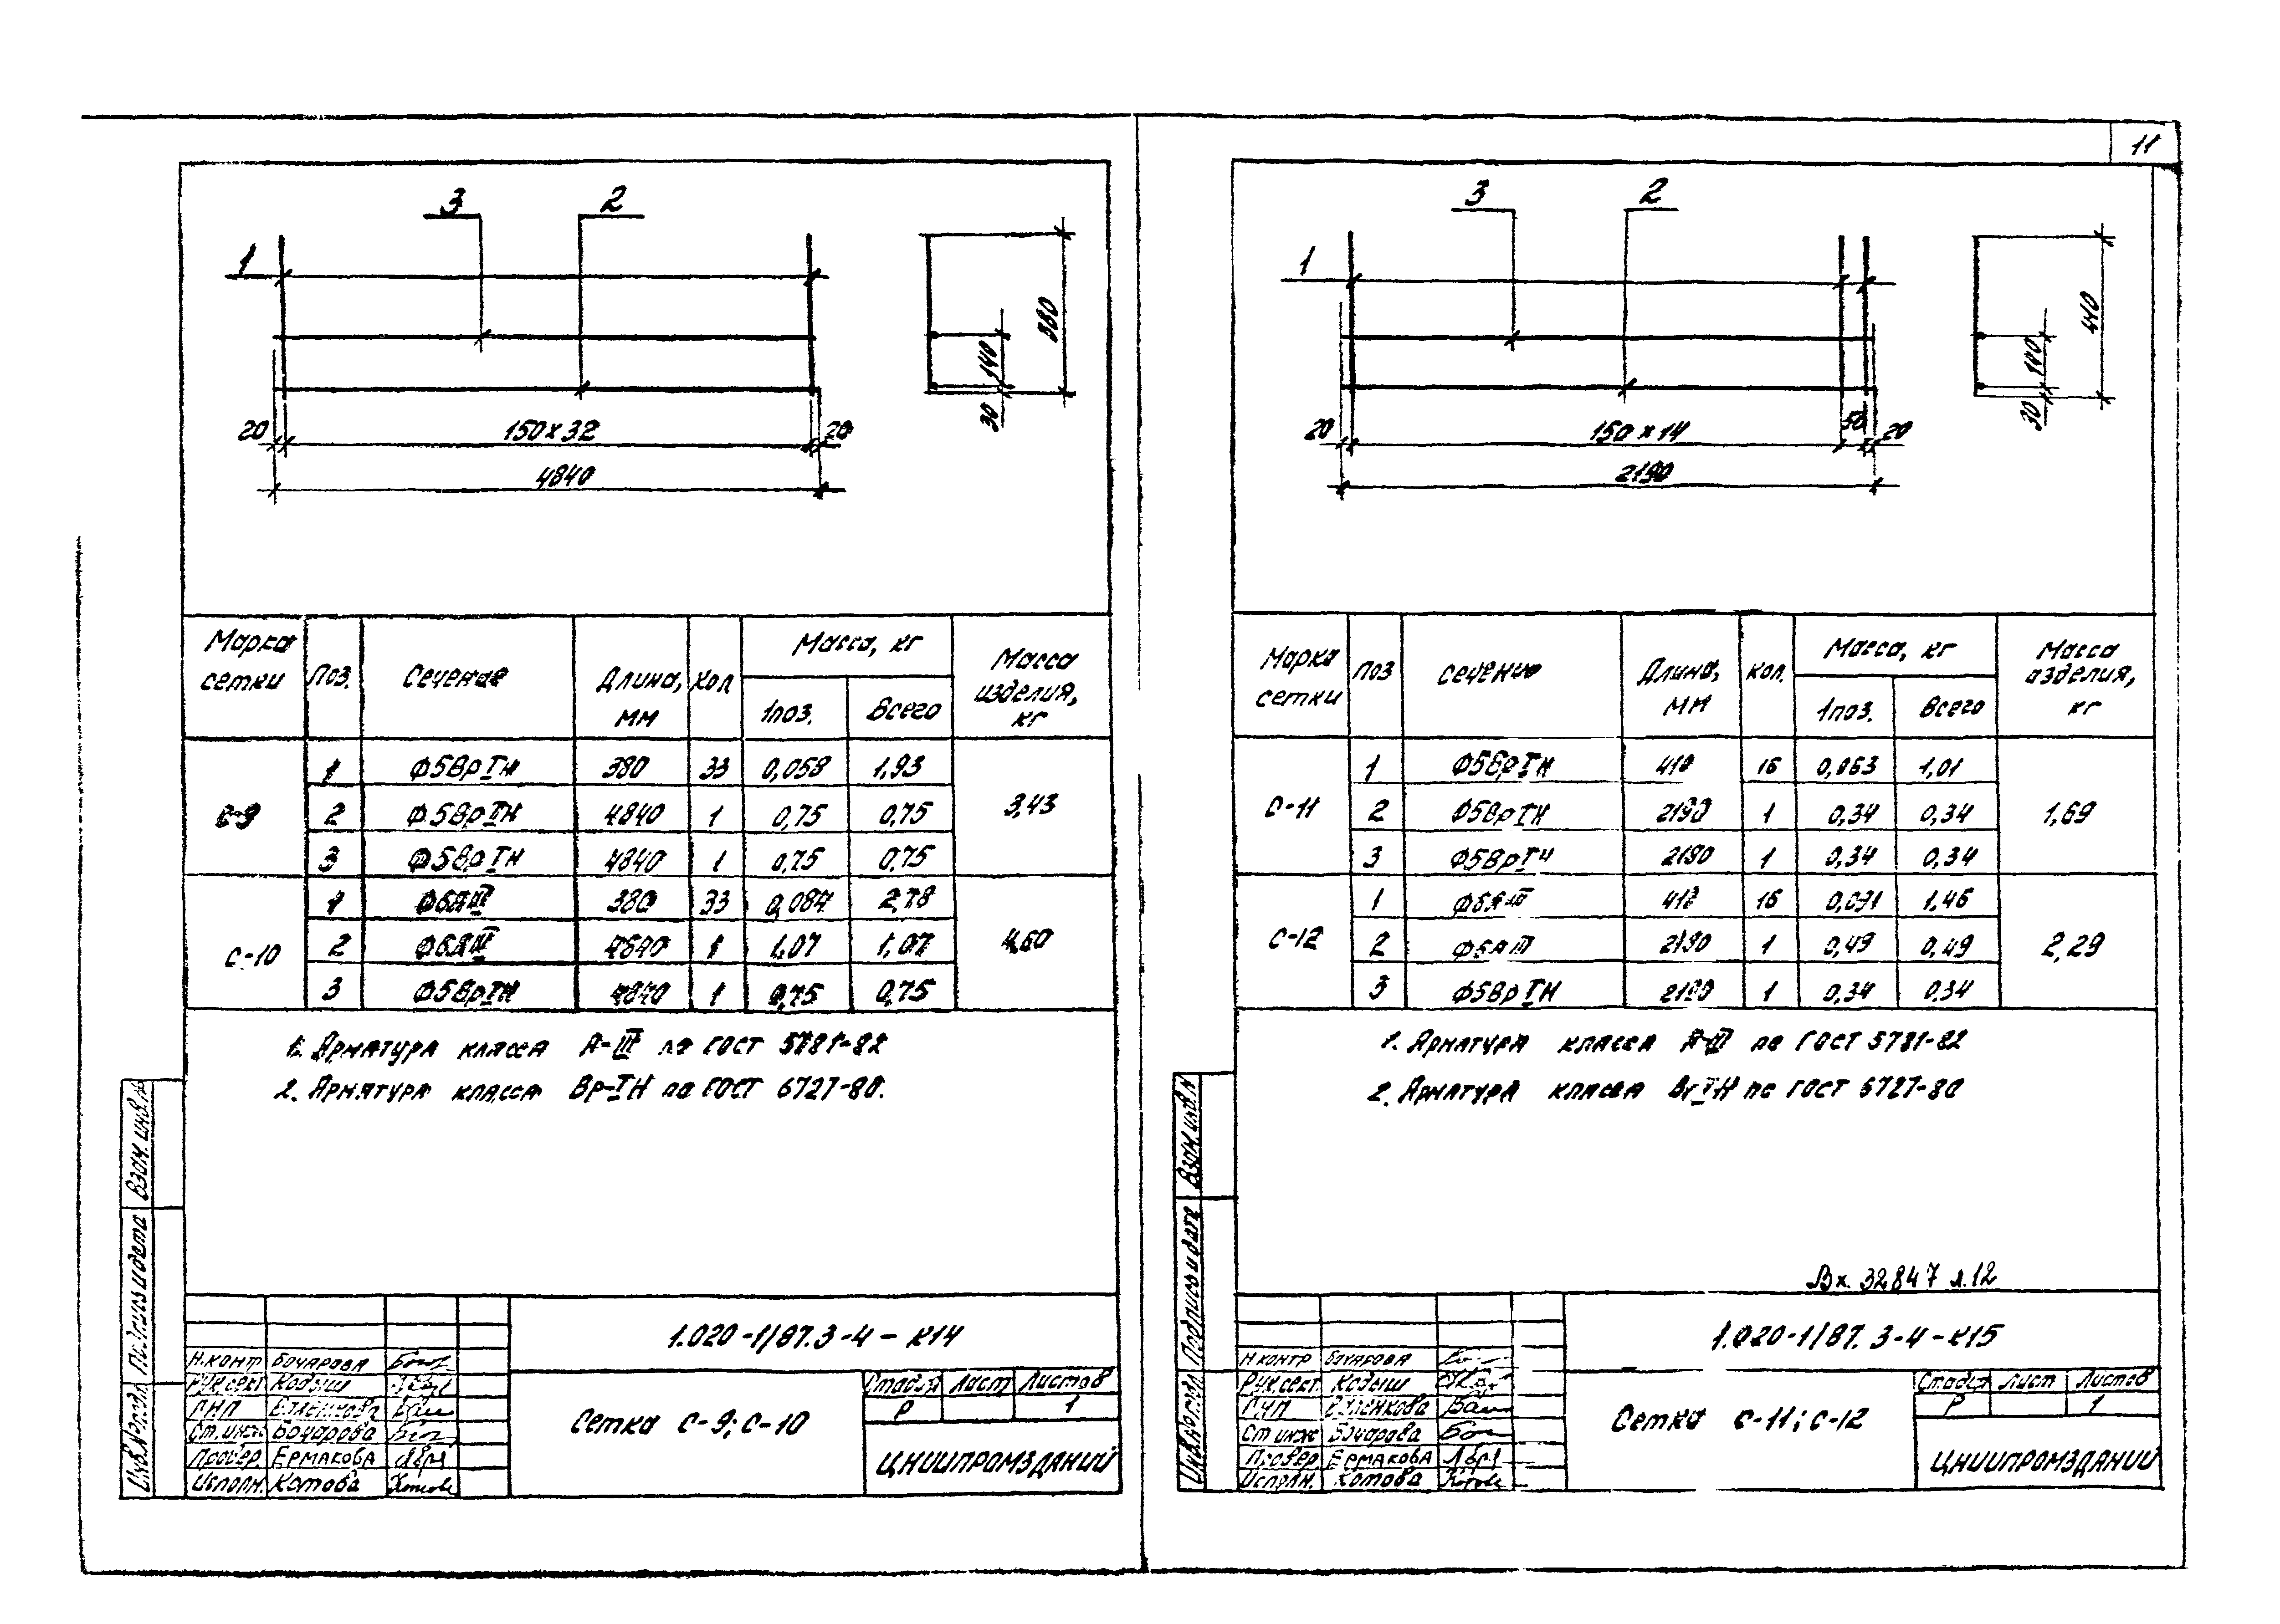 11
3 2
1
880
140
30
20 150×32 20
4840
Марка сетки Поз. Сечение Длина, мм Кол Масса, кг Масса изделия, кг
1поз. Всего
С-9 3,43
1 Ф5ВрIН 380 33 0,058 1,93
2 Ф5ВрIН 4840 1 0,75 0,75
3 Ф5ВрIН 4840 1 0,75 0,75
С-10 4,60
1 Ф6АIII 380 33 0,084 2,78
2 Ф6АIII 4840 1 1,07 1,07
3 Ф5ВрIН 4840 1 0,75 0,75
1. Арматура класса А-III по ГОСТ 5781-82
2. Арматура класса Вр-IН по ГОСТ 6727-80.
Взам. инв. №
Подпись и дата
Инв. № подл
1.020-1/87.3-4-К14
Н.контр Бочарова
Рук.сект Кодыш
ГИП
Ст.инж Бочарова
Провер. Ермакова
Исполн. Котова
Сетка С-9; С-10
Стадия Лист Листов
Р 1
ЦНИИПРОМЗДАНИЙ
3 2
1
440
140
30
20 150×14 50 20
2190
Марка сетки Поз Сечение Длина, мм Кол. Масса, кг Масса изделия, кг
1поз. Всего
С-11 1,69
1 Ф5ВрIН 410 16 0,063 1,01
2 Ф5ВрIН 2190 1 0,34 0,34
3 Ф5ВрIН 2190 1 0,34 0,34
С-12 2,29
1 Ф6АIII 410 16 0,091 1,46
2 Ф6АIII 2190 1 0,49 0,49
3 Ф5ВрIН 2190 1 0,34 0,34
1. Арматура класса А-III по ГОСТ 5781-82
2. Арматура класса ВрIН по ГОСТ 6727-80
Вх. 32847 л.12
Взам. инв. N
Подпись и дата
Инв. № подл
1.020-1/87.3-4-К15
Н.контр Бочарова
Рук.сект. Кодыш
ГИП
Ст.инж Бочарова
Провер. Ермакова
Исполн. Котова
Сетка С-11; С-12
Стадия Лист Листов
Р 1
ЦНИИПРОМЗДАНИЙ